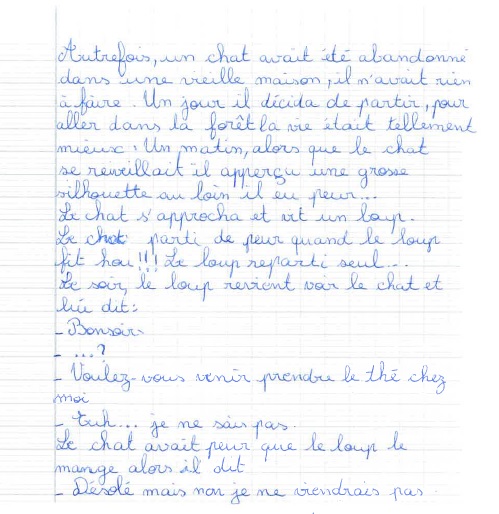 Autrefois, un chat avait été abandonné
dans une vieille maison, il n'avait rien
à faire. Un jour il décida de partir, pour
aller dans la forêt la vie était tellement
mieux. Un matin, alors que le chat
se reveillait il apperçu une grosse
silhouette au loin il eu peur...
Le chat s'approcha et vit un loup.
Le chat parti de peur quand le loup
fit hou!!! Le loup reparti seul...
Le soir, le loup revient voir le chat et
lui dit:
- Bonsoir
- ...?
- Voulez-vous venir prendre le thé chez
moi
- Euh... je ne sais pas.
Le chat avait peur que le loup le
mange alors il dit
- Désolé mais non je ne viendrais pas.